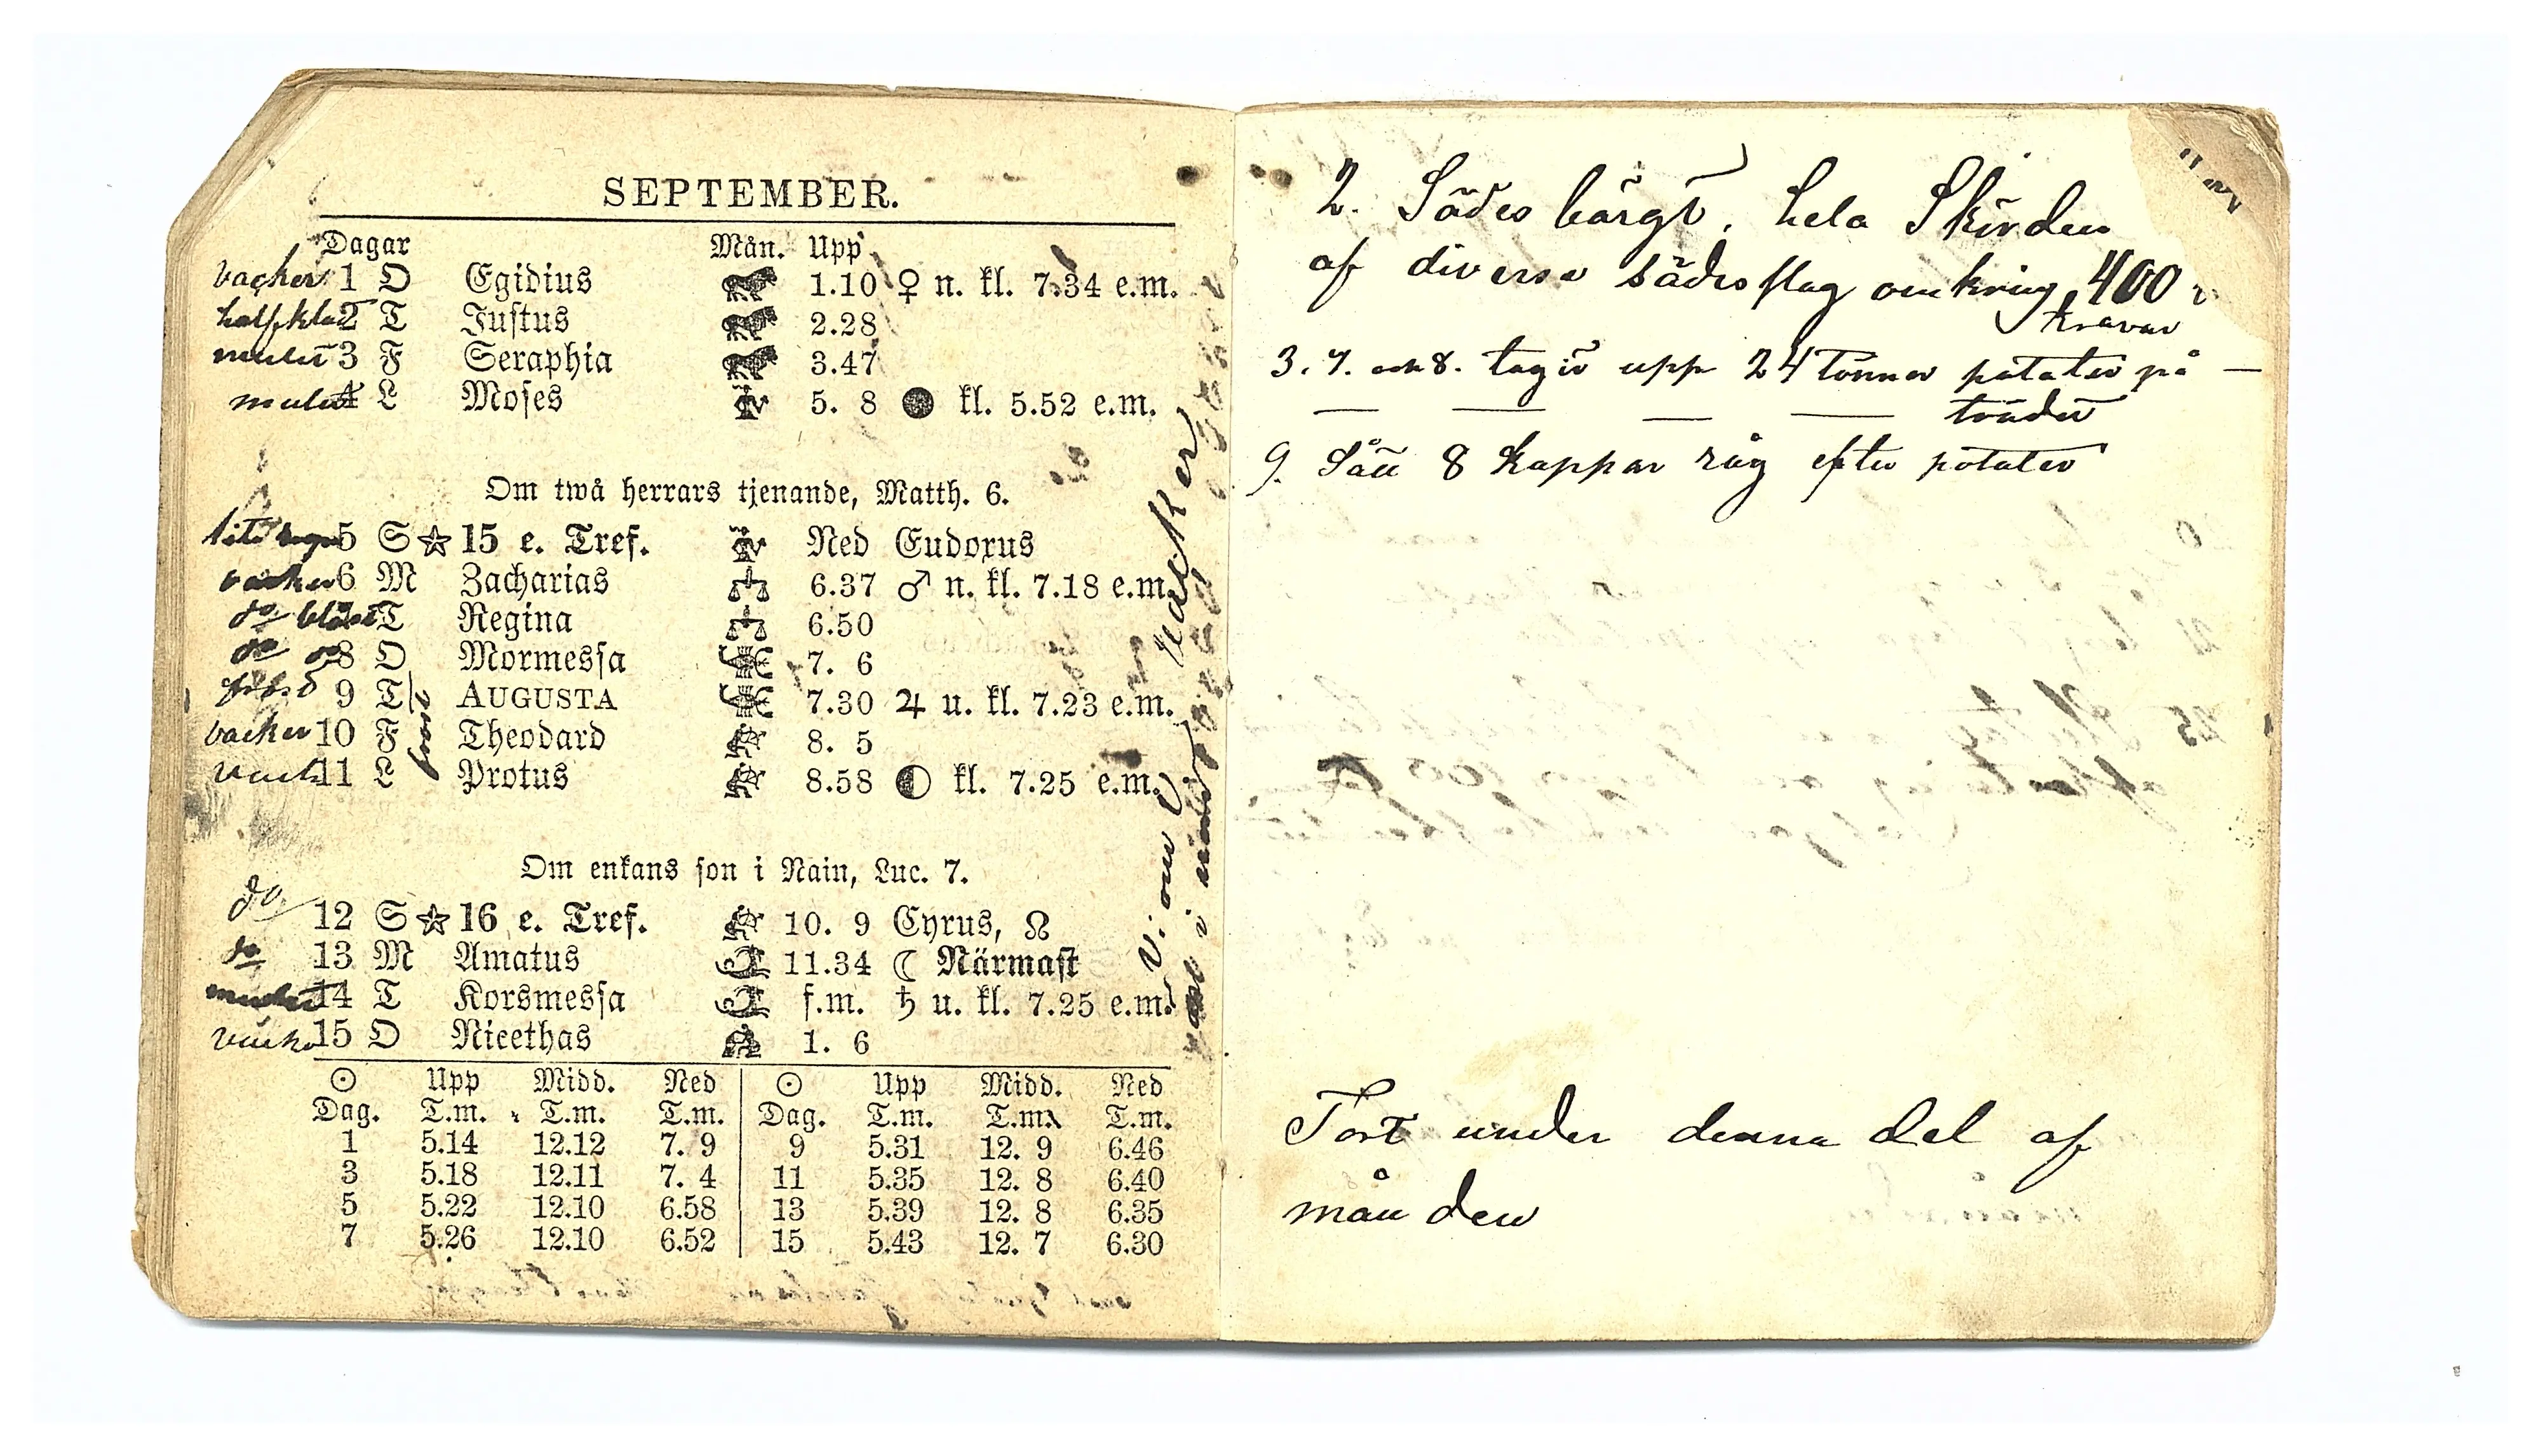 SEPTEMBER.
Dagar Mån. Upp
vacker 1 O Egidius 1.10 ♀ n. kl. 7.34 e.m.
halfklar 2 T Justus 2.28
mulet 3 F Seraphia 3.47
mulet 4 L Moses 5. 8 ● kl. 5.52 e.m.
Om twå herrars tjenande, Matth. 6.
lite regn 5 S☆15 e. Tref. Ned Eudoxus
vacker 6 M Zacharias 6.37 ♂ n. kl. 7.18 e.m.
do blåst T Regina 6.50
do do 8 O Mormessa 7. 6
9 T AUGUSTA 7.30 ♃ u. kl. 7.23 e.m.
vacker 10 F Theodard 8. 5
frost
vack 11 L Protus 8.58 ◐ kl. 7.25 e.m.
Om enkans son i Nain, Luc. 7.
do 12 S☆16 e. Tref. 10. 9 Cyrus, ☊
do 13 M Amatus 11.34 ☾ Närmast
mulet 14 T Korsmessa f.m. ♄ u. kl. 7.25 e.m.
vacke 15 O Nicethas 1. 6
☉ Upp Midd. Ned ☉ Upp Midd. Ned
Dag. T.m. T.m. T.m. Dag. T.m. T.m. T.m.
1 5.14 12.12 7. 9 9 5.31 12. 9 6.46
3 5.18 12.11 7. 4 11 5.35 12. 8 6.40
5 5.22 12.10 6.58 13 5.39 12. 8 6.35
7 5.26 12.10 6.52 15 5.43 12. 7 6.30
vacker
2. Sädes bärgt, hela Skörden
af diverse sädesslag omkring 400
travar
3. 7. och 8. tagit upp 24 Tönnor potater på —
— — — — trädet
9. Sått 8 Kappar råg efter potater
Tort under denna del af
månden